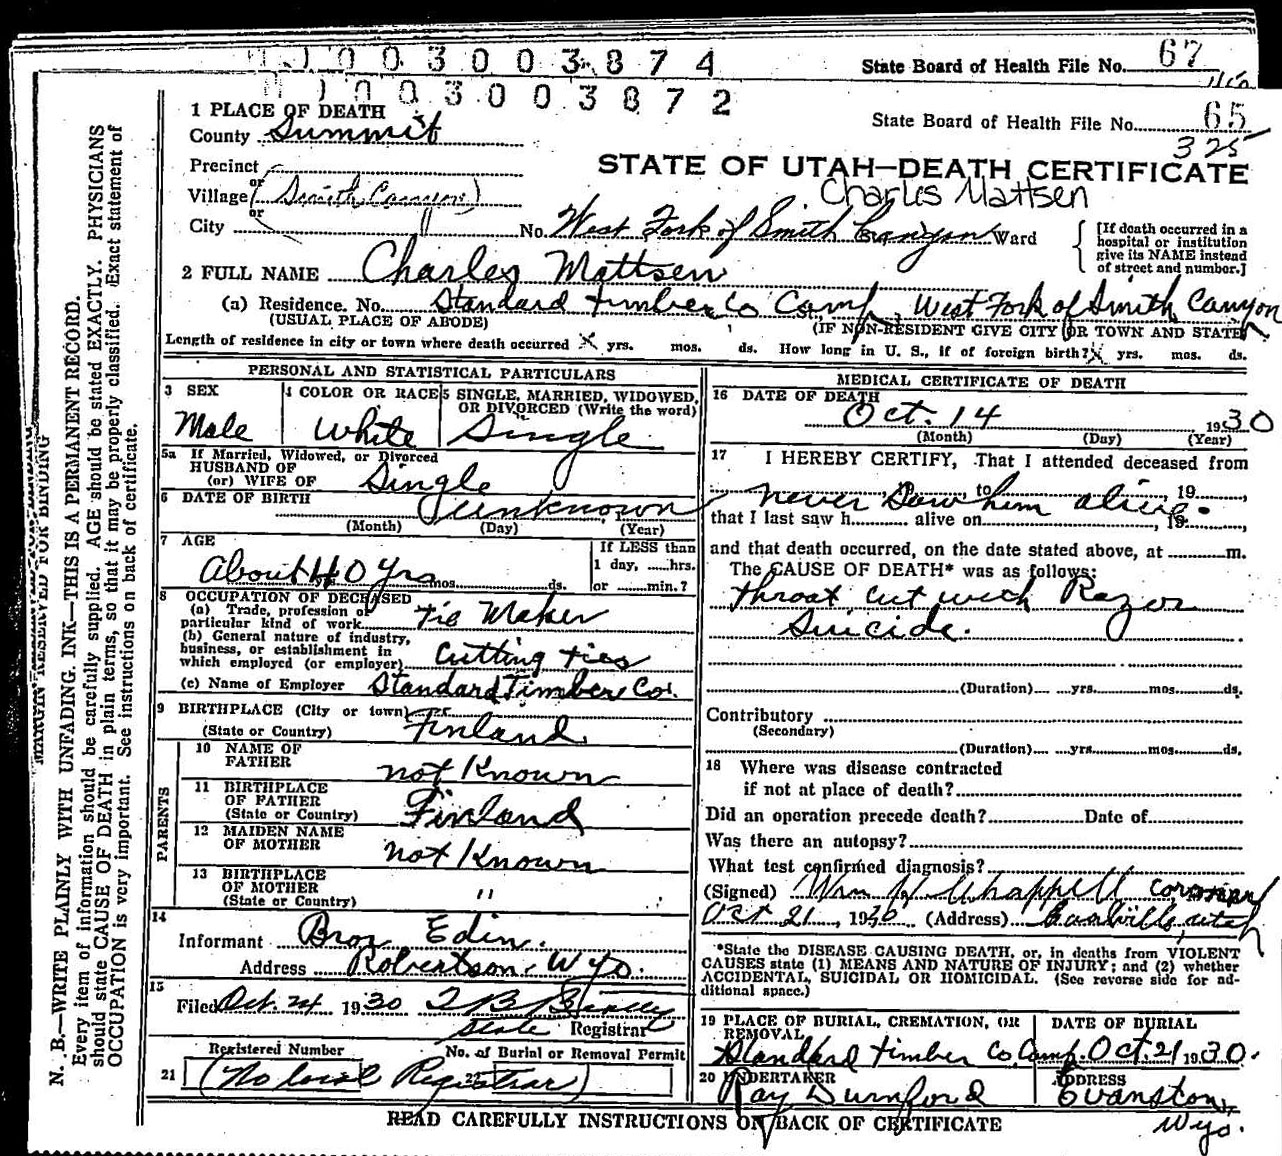 003003874
State Board of Health File No. 67
003003872
1 PLACE OF DEATH
State Board of Health File No. 65
County Summit
325
Precinct
STATE OF UTAH—DEATH CERTIFICATE
or
Village (Smith Canyon)
Charles Mattsen
or
City No. West Fork of Smith Canyon Ward
[If death occurred in a
hospital or institution
give its NAME instead
of street and number.]
2 FULL NAME Charley Mattsen
(a) Residence. No. Standard timber Co Camp, West Fork of Smith Canyon
(USUAL PLACE OF ABODE) (IF NON-RESIDENT GIVE CITY OR TOWN AND STATE)
Length of residence in city or town where death occurred X yrs. mos. ds. How long in U. S., if of foreign birth? X yrs. mos. ds.
PERSONAL AND STATISTICAL PARTICULARS
3 SEX
Male
4 COLOR OR RACE
White
5 SINGLE, MARRIED, WIDOWED,
OR DIVORCED (Write the word)
Single
5a If Married, Widowed, or Divorced
HUSBAND OF
(or) WIFE OF Single
6 DATE OF BIRTH unknown
(Month) (Day) (Year)
7 AGE
About 40 yrs mos. ds.
If LESS than
1 day, hrs.
or min.?
8 OCCUPATION OF DECEASED
(a) Trade, profession or
particular kind of work tie Maker
(b) General nature of industry,
business, or establishment in
which employed (or employer) Cutting ties
(c) Name of Employer Standard Timber Co.
9 BIRTHPLACE (City or town)
(State or Country) Finland
PARENTS
10 NAME OF
FATHER not Known
11 BIRTHPLACE
OF FATHER
(State or Country) Finland
12 MAIDEN NAME
OF MOTHER not Known
13 BIRTHPLACE
OF MOTHER
(State or Country) "
14
Informant Broz Edin.
Address Robertson, Wyo.
15
Filed Oct. 24 1930
State Registrar
Registered Number No. of Burial or Removal Permit
21 (No local Registrar)
MEDICAL CERTIFICATE OF DEATH
16 DATE OF DEATH
Oct. 14 1930
(Month) (Day) (Year)
17 I HEREBY CERTIFY, That I attended deceased from
never Saw to him alive, 19
that I last saw h alive on , 19
and that death occurred, on the date stated above, at m.
The CAUSE OF DEATH* was as follows:
throat cut with Razor
Suicide.
(Duration) yrs. mos. ds.
Contributory
(Secondary)
(Duration) yrs. mos. ds.
18 Where was disease contracted
if not at place of death?
Did an operation precede death? Date of
Was there an autopsy?
What test confirmed diagnosis?
(Signed) Wm H Chappell coroner
Oct 21, 1930 (Address) Coalville, Utah
*State the DISEASE CAUSING DEATH, or, in deaths from VIOLENT
CAUSES state (1) MEANS AND NATURE OF INJURY; and (2) whether
ACCIDENTAL, SUICIDAL OR HOMICIDAL. (See reverse side for ad-
ditional space.)
19 PLACE OF BURIAL, CREMATION, OR
REMOVAL
Standard timber Co Camp.
DATE OF BURIAL
Oct. 21 1930.
20 UNDERTAKER
Ray Durnford
ADDRESS
Evanston,
Wyo.
READ CAREFULLY INSTRUCTIONS ON BACK OF CERTIFICATE
MARGIN RESERVED FOR BINDING
N. B.—WRITE PLAINLY WITH UNFADING. INK—THIS IS A PERMANENT RECORD.
Every item of information should be carefully supplied. AGE should be stated EXACTLY. PHYSICIANS
should state CAUSE OF DEATH in plain terms, so that it may be properly classified. Exact statement of
OCCUPATION is very important. See instructions on back of certificate.